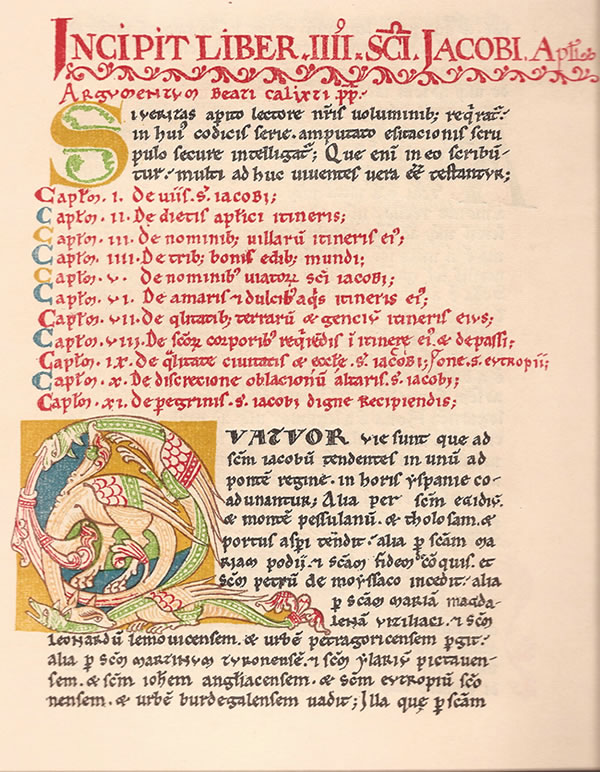 INCIPIT LIBER .IIII. SCI. JACOBI. Apłi.
ARGUMENTUM BEATI CALIXTI PP.
SI VERITAS apito lectore nris voluminib; reqrat.
in hui' codicis serie. amputato esitacionis scru
pulo secure intelligat; Que eni in eo scribū-
tur. multi ad huc viventes vera eē testantur;
Capłm. I. De viis. s. iacobi;
Capłm. II. De dietis aplici itineris;
Capłm. III. De nominib; villarū itineris ei';
Capłm. IIII. De trib; bonis edib; mundi;
Capłm. V. De nominib' viator sci iacobi;
Capłm. VI. De amaris ⁊ dulcib' aqis itineris ei';
Capłm. VII. De qlitatib; terrarū & genciū itineris eius;
Capłm. VIII. De scor corporib' reqredis i itinere ei'. & de passi;
Capłm. IX. De qlitate civitatis & eccle. s. iacobi; sone. s. eutropii;
Capłm. X. De discrecione oblacionū altaris. s. iacobi;
Capłm. XI. De peregrinis. s. iacobi digne recipiendis;
QUATUOR vie sunt que ad
scm iacobū tendentes in unū ad
pontē regine. in horis yspanie co-
adunantur; Alia per scm egidiū.
& montē pessulanū. & tholosam. &
portus aspi tendit. alia p scam ma
riam podii. ⁊ scam fidem de coquis. et
scm petrū de moyssaco incedit. alia
p scam mariā magda-
lenā viziliaci. ⁊ scm
leonardū lemovicensem. & urbē petragoricensem pgit.
alia p scm martinum turonensē. ⁊ scm ylariū pictaven-
sem. & scm iohem angliacensem. & scm eutropiū scō
nensem. & urbē burdegalensem vadit; Illa que p scam